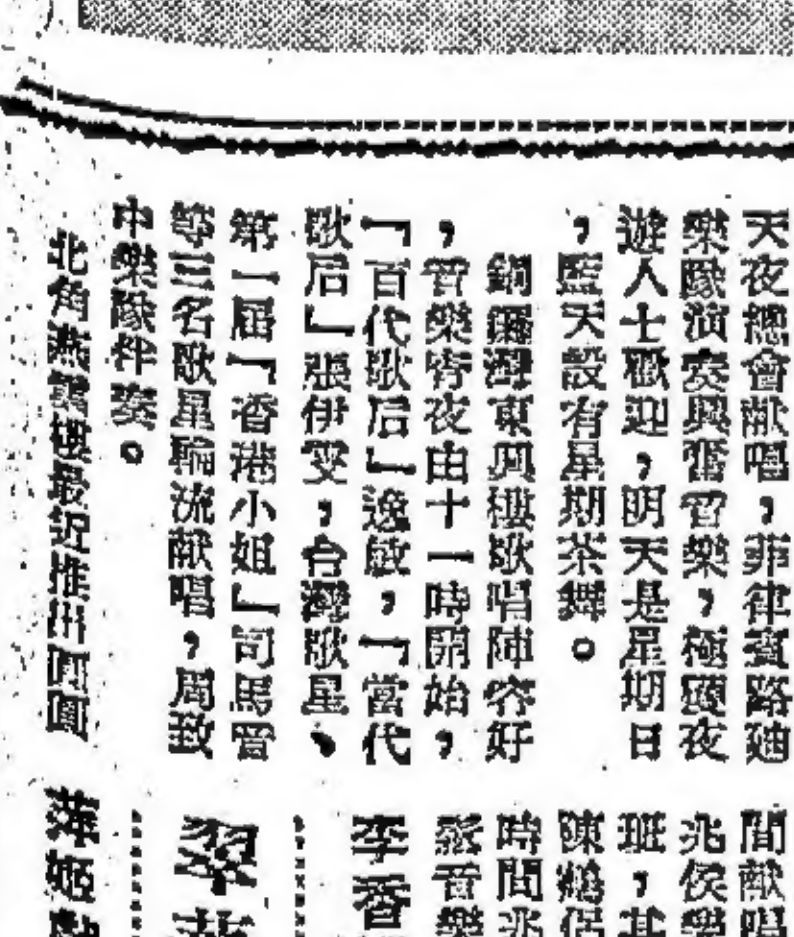 天夜總會獻唱，菲律賓路廸
樂隊演奏興奮音樂，極獲夜
遊人士歡迎，明天是星期日
，藍天設有星期茶舞。
銅鑼灣東興樓歌唱陣容好
，音樂宵夜由十一時開始，
「百代歌后」逸敏，「當代
歌后」張伊雯，台灣歌星、
第一屆「香港小姐」司馬音
等三名歌星輪流獻唱，周致
中樂隊伴奏。
北角燕雲樓最近推出
間獻唱
兆侯樂
班，其
陳鶴侶
時間
音樂
李香
翠
萍姬